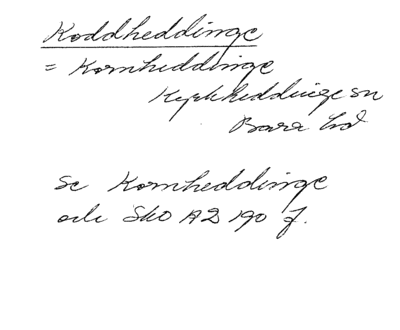 Koddheddinge
= Kornheddinge
Kyrkheddinge sn
Bara hd
Se Kornheddinge
och SkO A2 190 f.